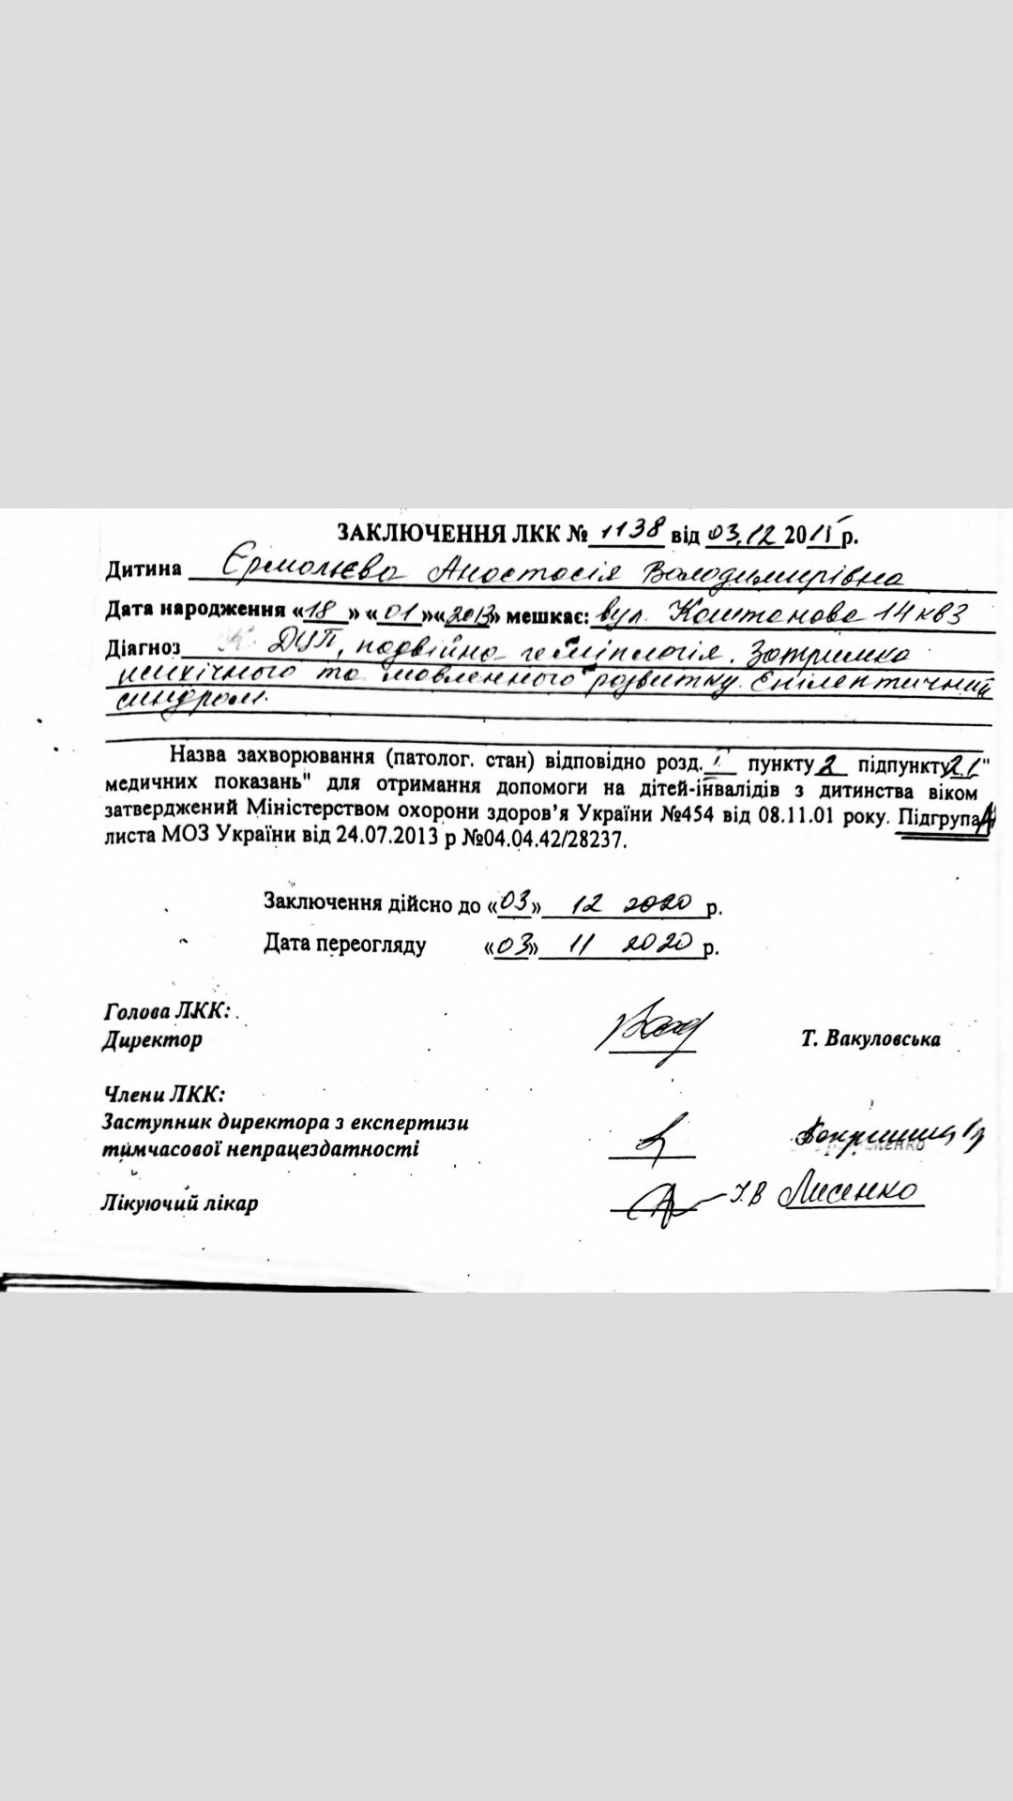 ЗАКЛЮЧЕННЯ ЛКК № 1138 від 03.12 2015 р.
Дитина Єрмолєва Анастасія Володимирівна
Дата народження «18» «01»«2013» мешкає: вул. Каштанова 14 кв 3
Діагноз ДЦП, подвійна геміплегія. Затримка
психічного та мовленного розвитку. Епілептичний
синдром.
Назва захворювання (патолог. стан) відповідно розд. I пункту 2 підпункту 2.1 "
медичних показань" для отримання допомоги на дітей-інвалідів з дитинства віком
затверджений Міністерством охорони здоров’я України №454 від 08.11.01 року. Підгрупа А
листа МОЗ України від 24.07.2013 р №04.04.42/28237.
Заключення дійсно до «03» 12 2020 р.
Дата переогляду «03» 11 2020 р.
Голова ЛКК:
Директор Т. Вакуловська
Члени ЛКК:
Заступник директора з експертизи
тимчасової непрацездатності
Лікуючий лікар І.В Лисенко